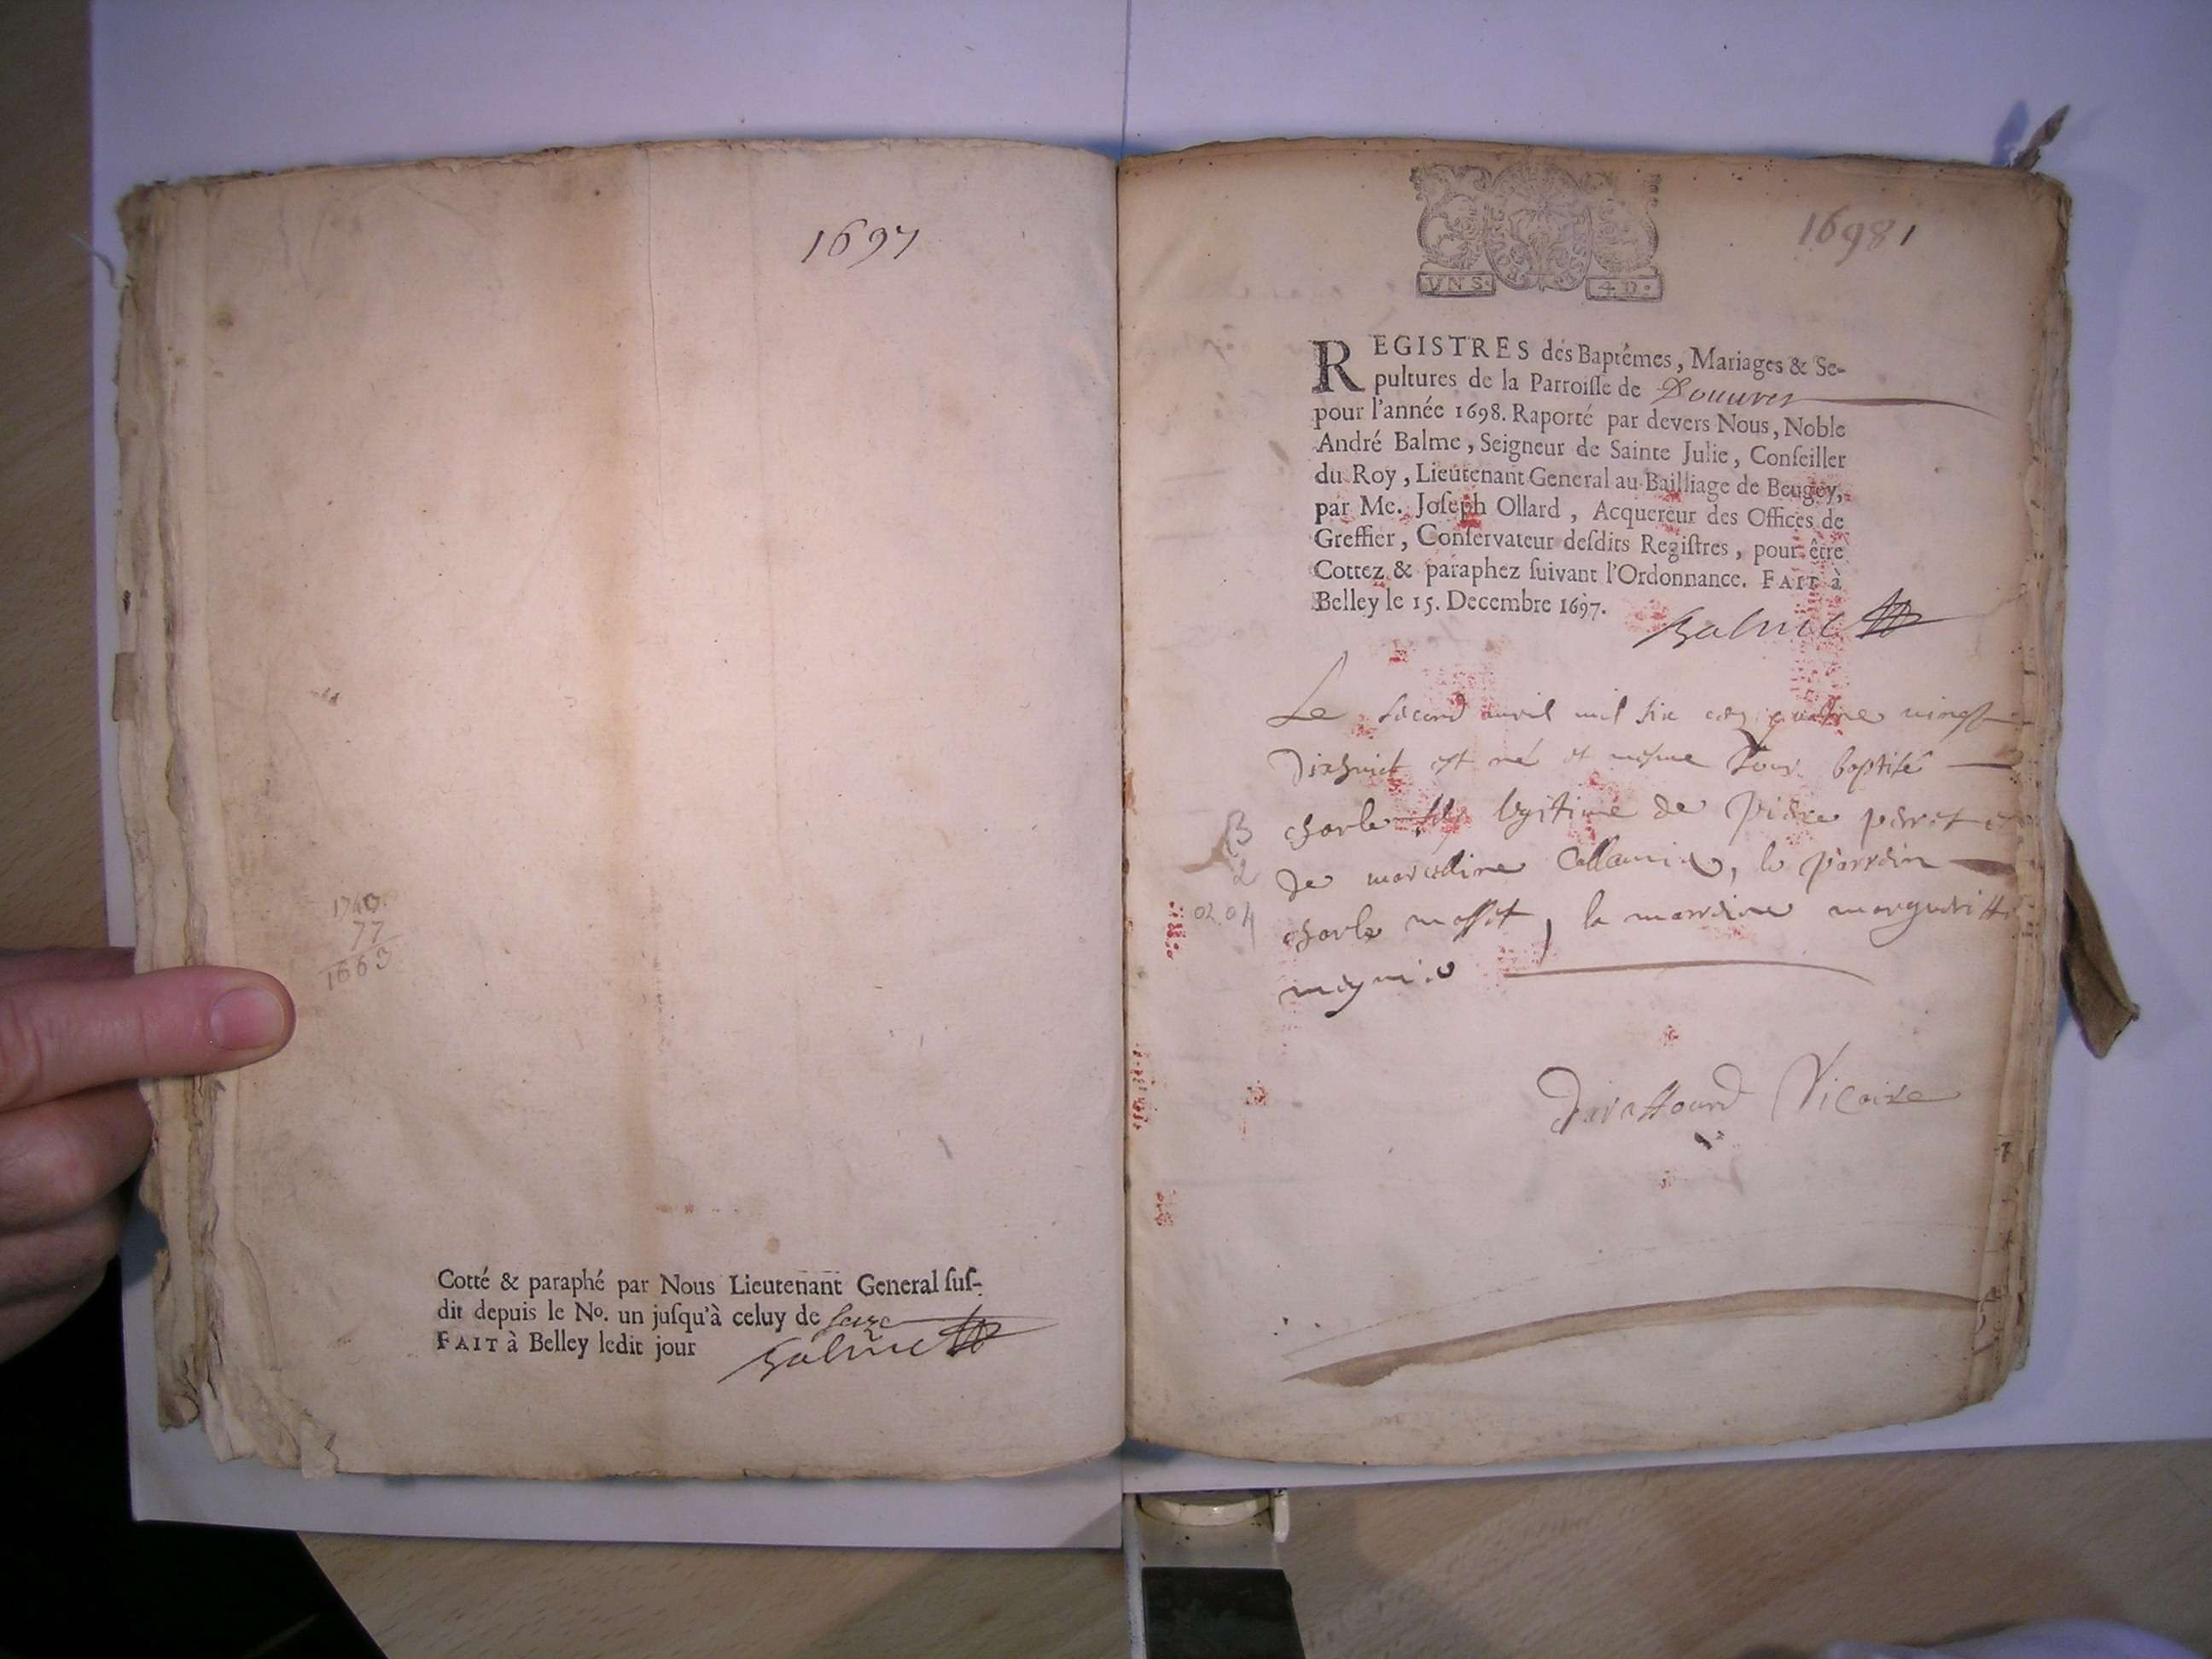 1697
1740
77
1663
Cotté & paraphé par Nous Lieutenant General suſ-
dit depuis le No. un juſqu'à celuy de seize
FAIT à Belley ledit jour
Balme
VNS. 4D.
1698 1
REGISTRES des Baptêmes, Mariages & Se-
pultures de la Parroiſſe de Douures
pour l'année 1698. Raporté par devers Nous, Noble
André Balme, Seigneur de Sainte Julie, Conſeiller
du Roy, Lieutenant General au Bailliage de Beugey,
par Me. Joſeph Ollard, Acquereur des Offices de
Greffier, Conſervateur deſdits Regiſtres, pour être
Cottez & paraphez ſuivant l'Ordonnance. FAIT à
Belley le 15. Decembre 1697.
Balme
Le second auril mil six cens quatre vingt
dixhuict est né et mesme Jour baptisé
charle fils legitime de piere perret et
B
2
de marceline, le parrein
02.04
charle, la marreine margueritte
Vicaire